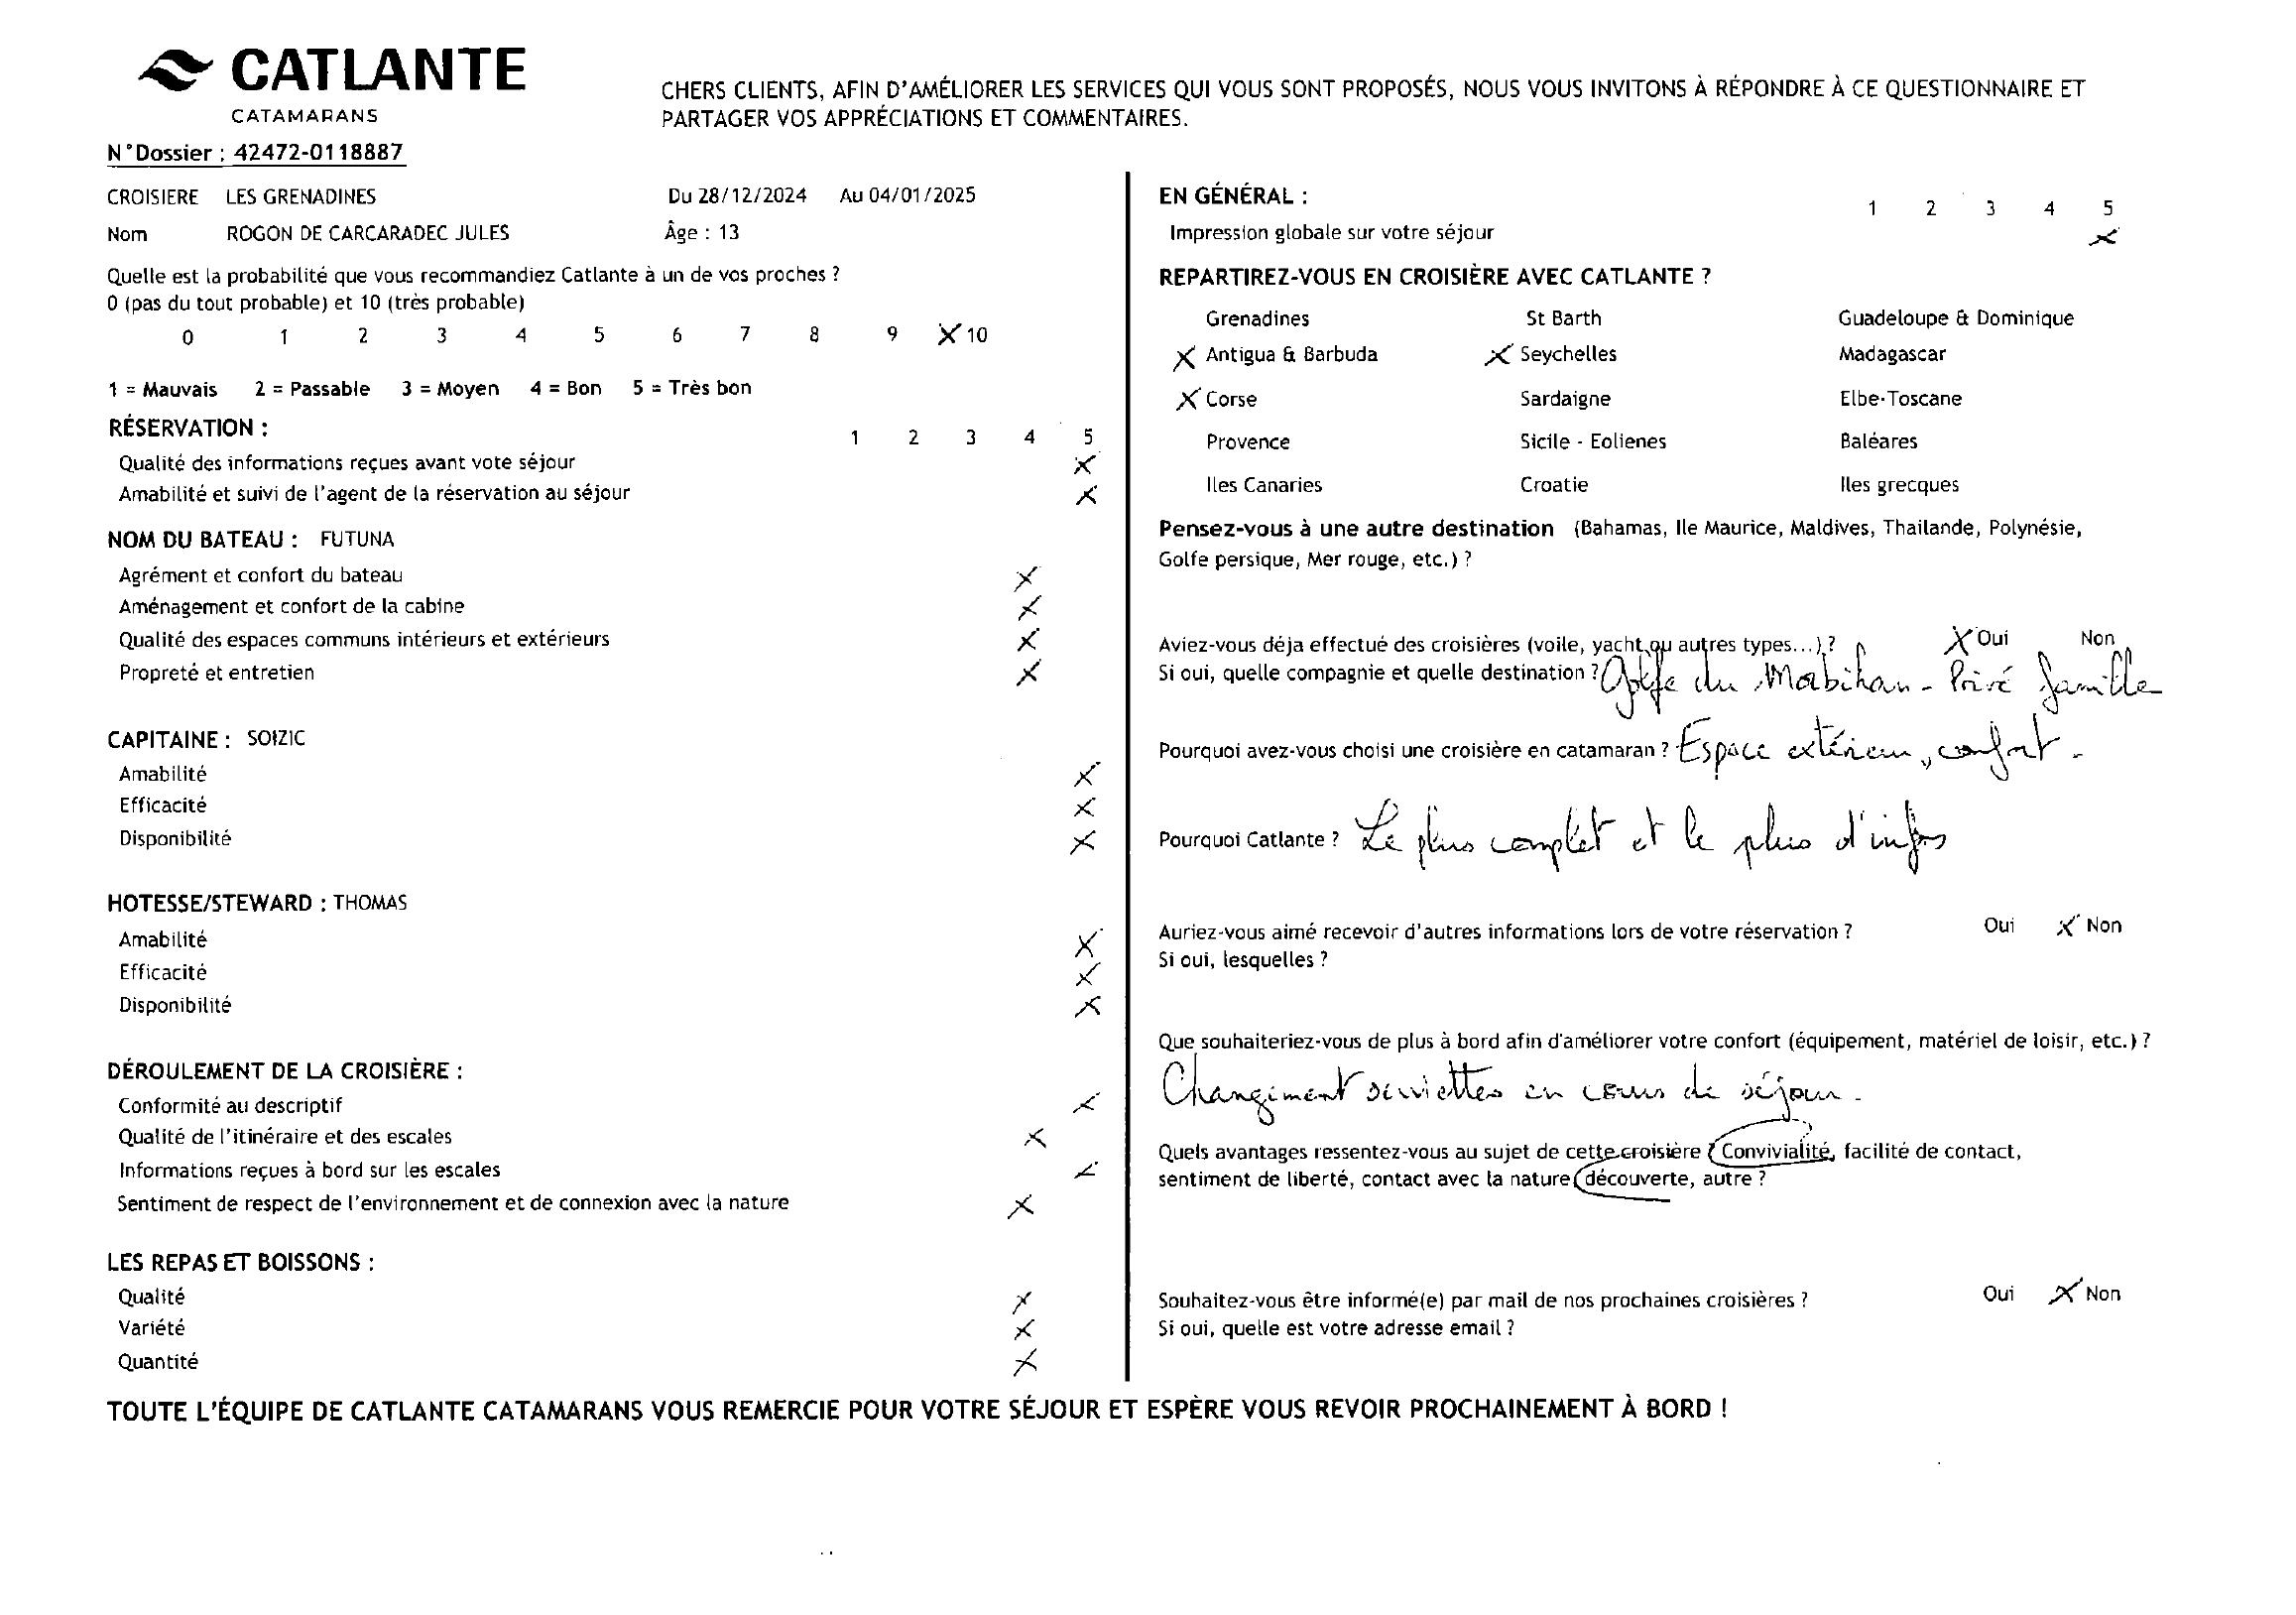 CATLANTE
CATAMARANS
CHERS CLIENTS, AFIN D'AMÉLIORER LES SERVICES QUI VOUS SONT PROPOSÉS, NOUS VOUS INVITONS À RÉPONDRE À CE QUESTIONNAIRE ET
PARTAGER VOS APPRÉCIATIONS ET COMMENTAIRES.
N°Dossier : 42472-0118887
CROISIERE LES GRENADINES Du 28/12/2024 Au 04/01/2025
Nom ROGON DE CARCARADEC JULES Âge : 13
Quelle est la probabilité que vous recommandiez Catlante à un de vos proches ?
0 (pas du tout probable) et 10 (très probable)
0 1 2 3 4 5 6 7 8 9 X 10
1 = Mauvais 2 = Passable 3 = Moyen 4 = Bon 5 = Très bon
RÉSERVATION :
1 2 3 4 5
Qualité des informations reçues avant vote séjour X
Amabilité et suivi de l'agent de la réservation au séjour X
NOM DU BATEAU : FUTUNA
Agrément et confort du bateau X
Aménagement et confort de la cabine X
Qualité des espaces communs intérieurs et extérieurs X
Propreté et entretien X
CAPITAINE : SOIZIC
Amabilité X
Efficacité X
Disponibilité X
HOTESSE/STEWARD : THOMAS
Amabilité X
Efficacité X
Disponibilité X
DÉROULEMENT DE LA CROISIÈRE :
Conformité au descriptif X
Qualité de l'itinéraire et des escales X
Informations reçues à bord sur les escales X
Sentiment de respect de l'environnement et de connexion avec la nature X
LES REPAS ET BOISSONS :
Qualité X
Variété X
Quantité X
EN GÉNÉRAL :
1 2 3 4 5
Impression globale sur votre séjour X
REPARTIREZ-VOUS EN CROISIÈRE AVEC CATLANTE ?
Grenadines St Barth Guadeloupe & Dominique
X Antigua & Barbuda X Seychelles Madagascar
X Corse Sardaigne Elbe-Toscane
Provence Sicile - Eolienes Baléares
Iles Canaries Croatie Iles grecques
Pensez-vous à une autre destination (Bahamas, Ile Maurice, Maldives, Thailande, Polynésie,
Golfe persique, Mer rouge, etc.) ?
Aviez-vous déja effectué des croisières (voile, yacht ou autres types...) ? X Oui Non
Si oui, quelle compagnie et quelle destination ? Golfe du Mobihan - Privé famille
Pourquoi avez-vous choisi une croisière en catamaran ? Espace extérieur, confort.
Pourquoi Catlante ? Le plus complet et le plus d'infos
Auriez-vous aimé recevoir d'autres informations lors de votre réservation ? Oui X Non
Si oui, lesquelles ?
Que souhaiteriez-vous de plus à bord afin d'améliorer votre confort (équipement, matériel de loisir, etc.) ?
Changement serviettes en cours de séjour.
Quels avantages ressentez-vous au sujet de cette croisière ? Convivialité, facilité de contact,
sentiment de liberté, contact avec la nature, découverte, autre ?
Souhaitez-vous être informé(e) par mail de nos prochaines croisières ? Oui X Non
Si oui, quelle est votre adresse email ?
TOUTE L'ÉQUIPE DE CATLANTE CATAMARANS VOUS REMERCIE POUR VOTRE SÉJOUR ET ESPÈRE VOUS REVOIR PROCHAINEMENT À BORD !